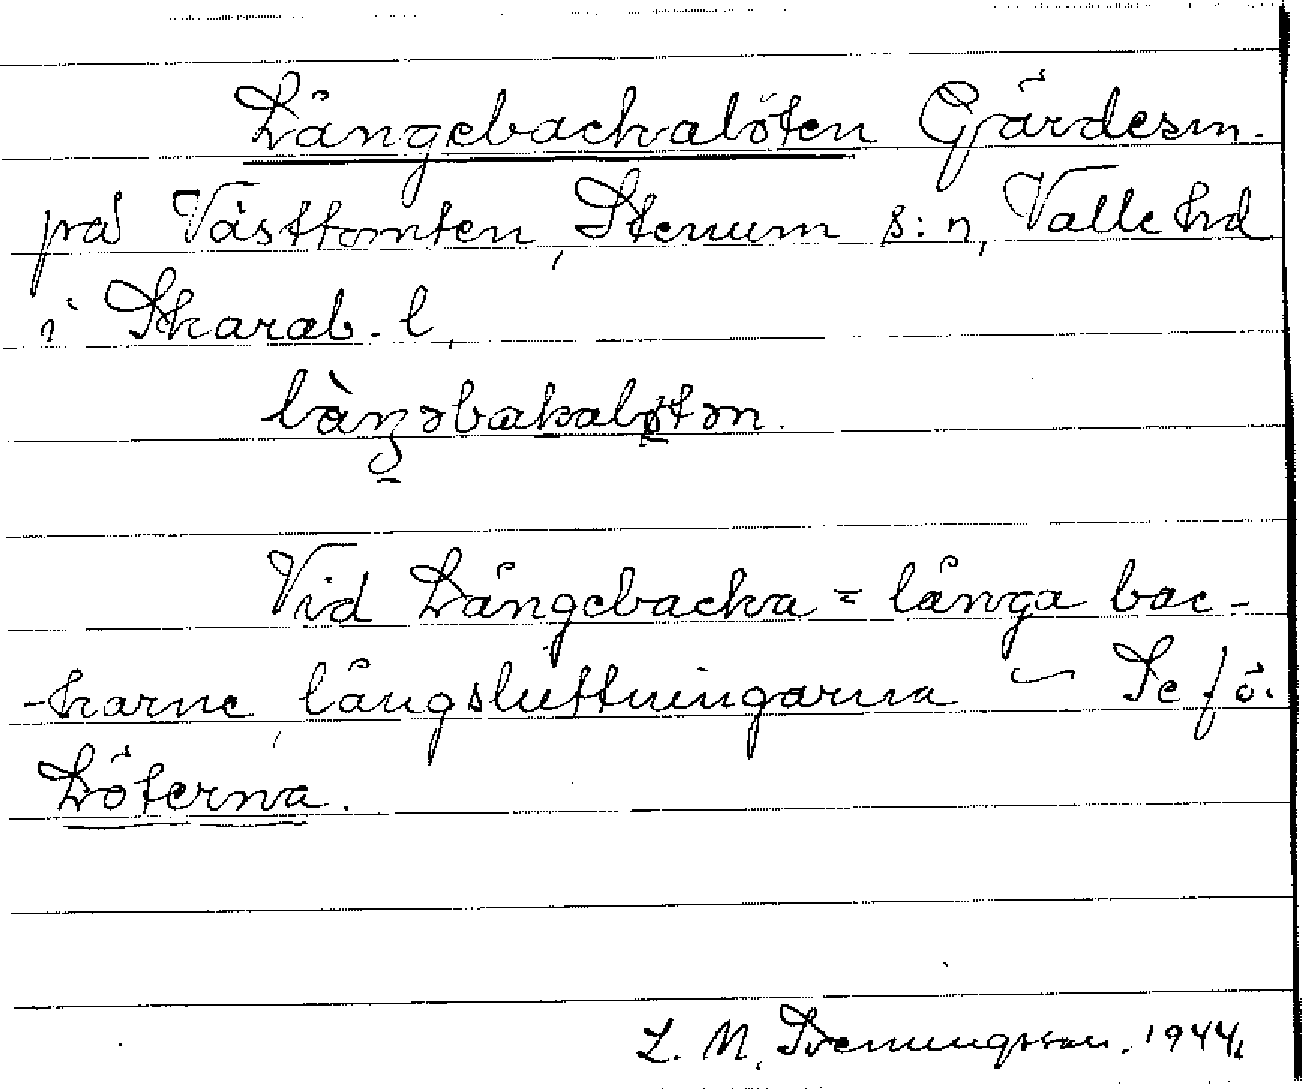 Långebackalöten Gärdesn.
på Västtomten, Stenum s:n, Valle hd
i Skarab. l.
làŋəbakaløtən.
Vid Långebacka = långa bac-
-karne, långsluttningarna ~ Se fö.
Löterna.
L. M. Svenungsson. 1944.